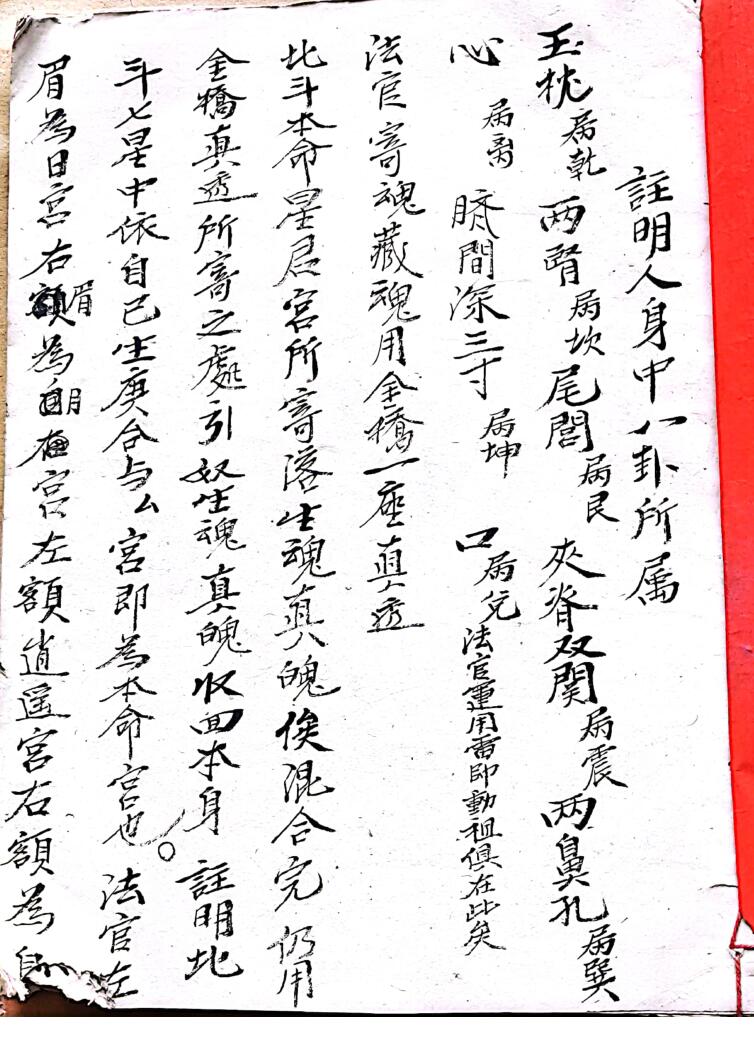 註明人身中八卦所属
玉枕属乾 两腎属坎 尾閭属艮 夾脊双関属震 两鼻孔属巽
心属离 臍間深三寸属坤 口属兌 法官運用雷即動祖俱在此矣
法官寄魂藏魂用金橋一座真透
北斗本命星君宮所寄落生魂真魄俟混合完仍用
金橋真透所寄之處引奴生魂真魄収回本身 註明北
斗七星中依自己生庚合与厶宮即為本命宮也。法官左
眉為日宮右眉為月宮左額逍遥宮右額為